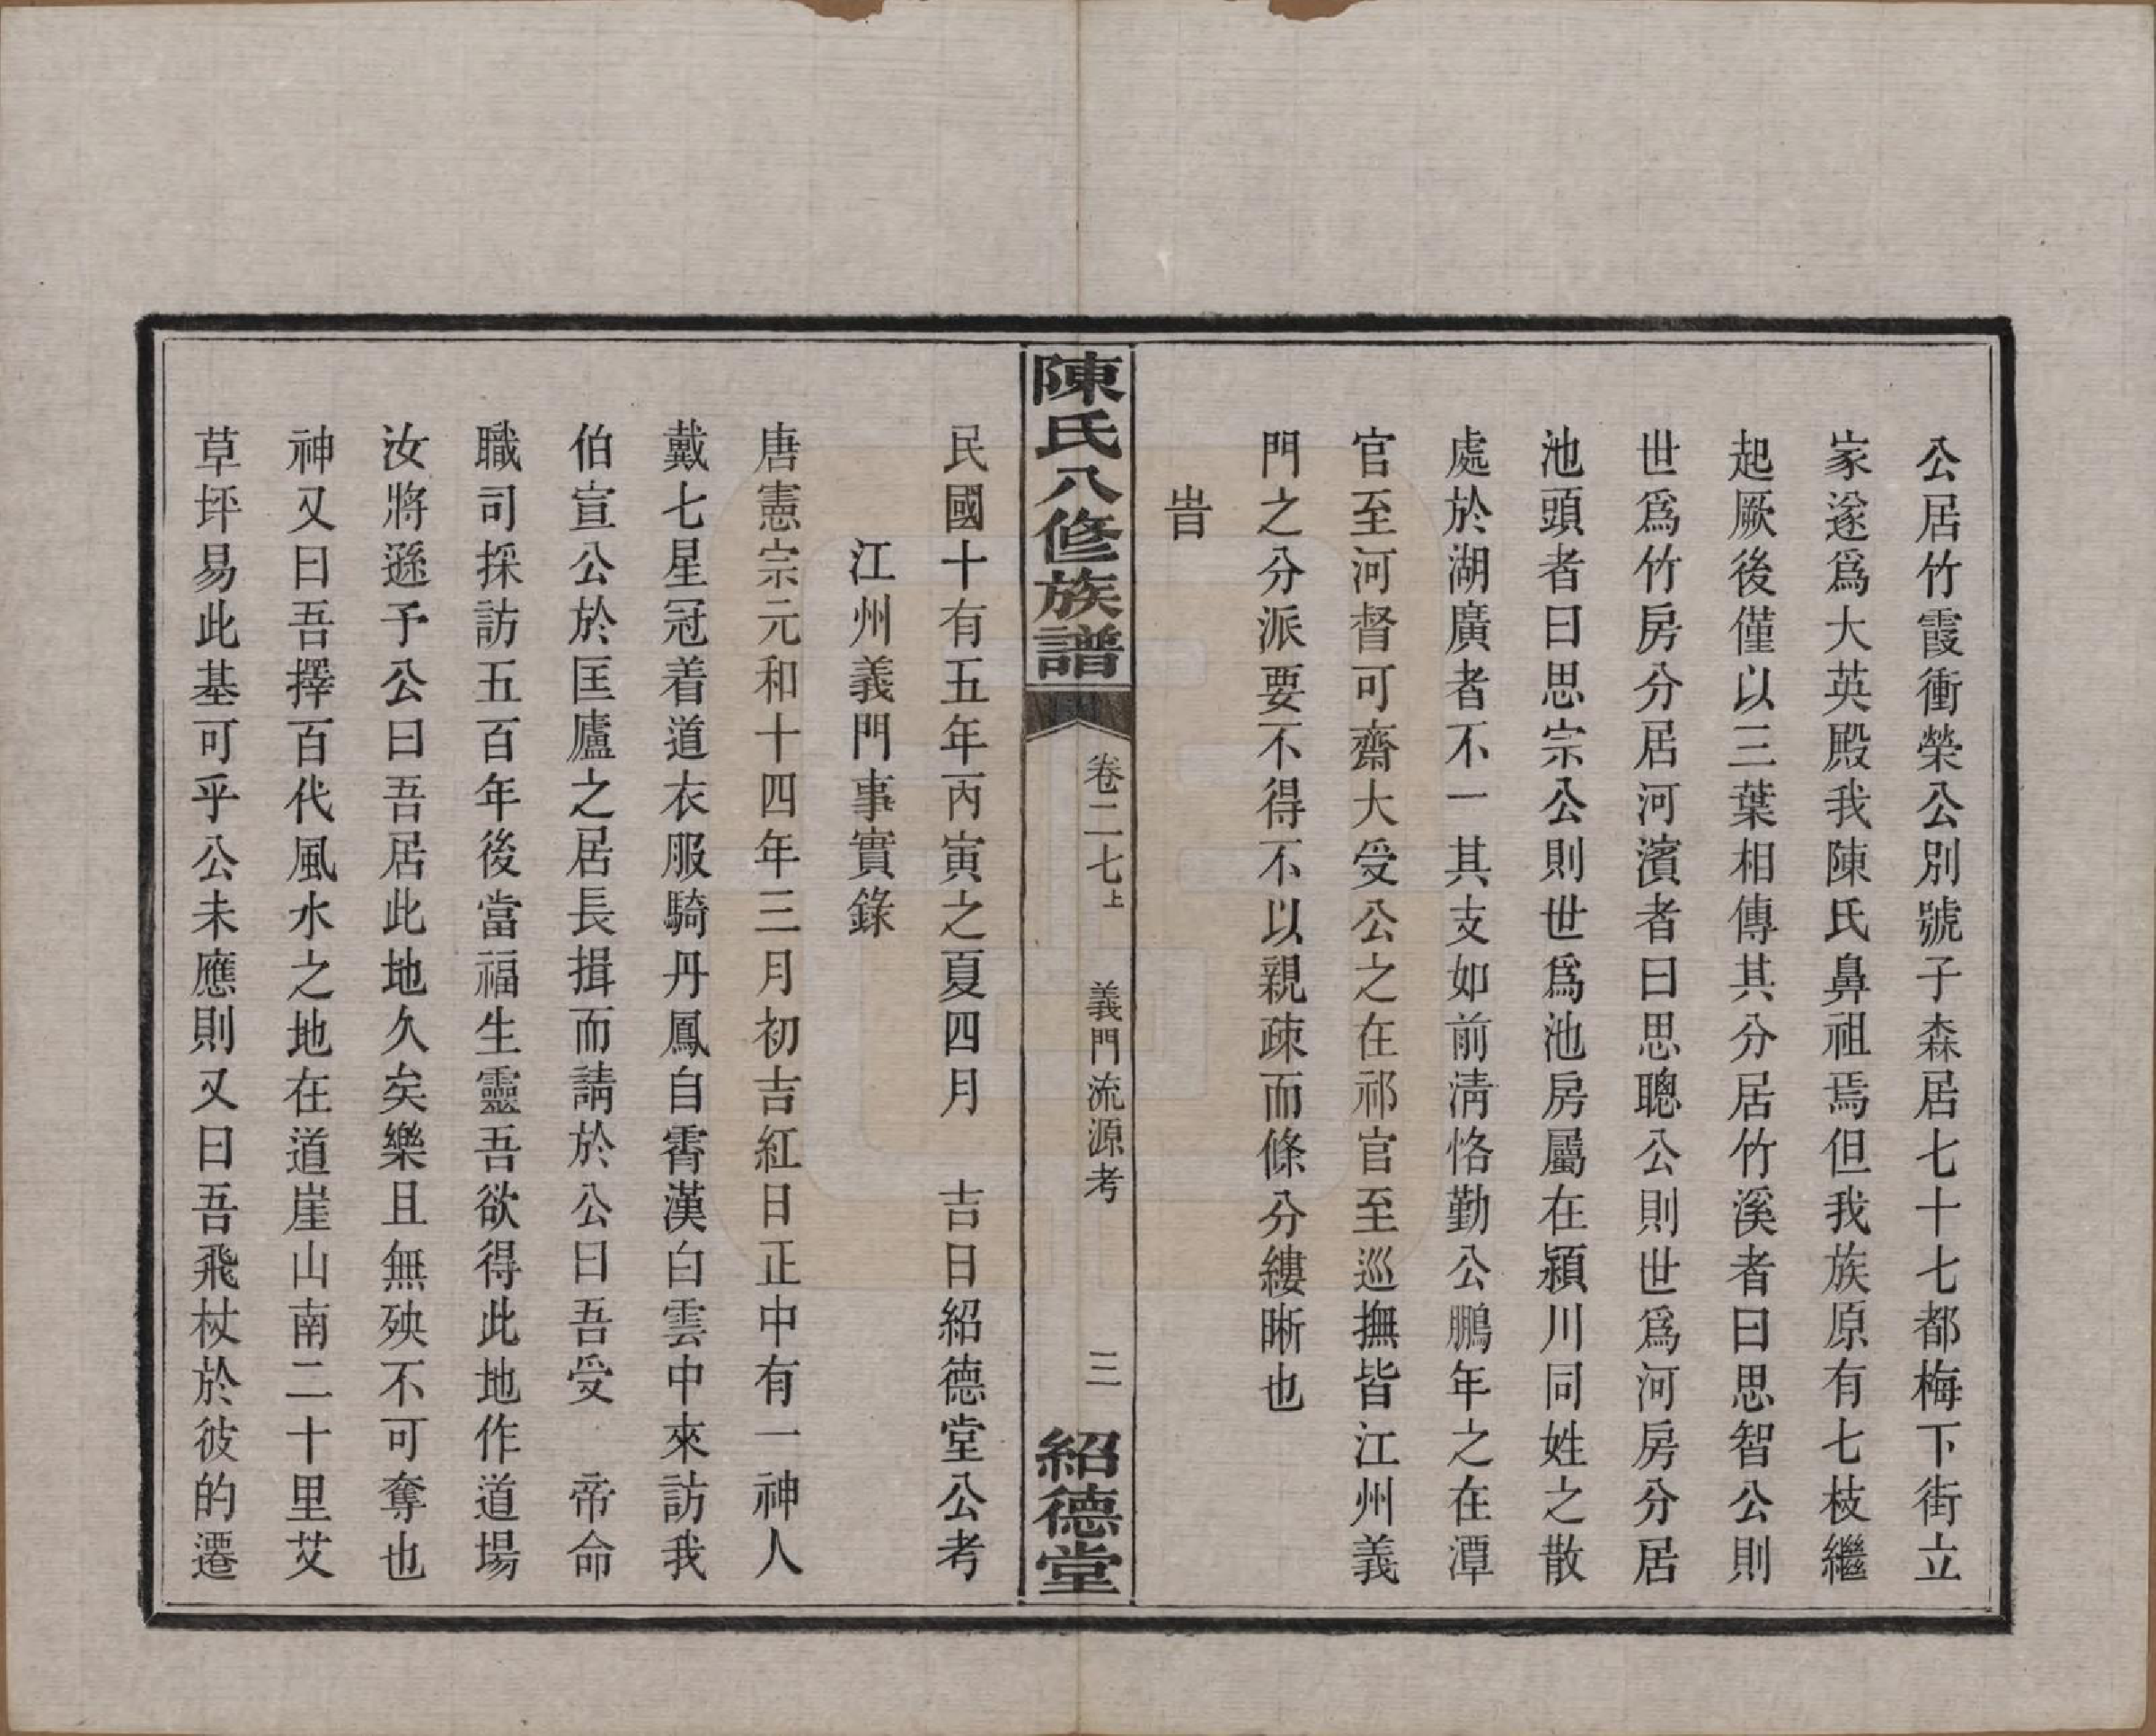 公居竹霞衝榮公別號子森居七十七都梅下街立
家遂爲大英殿我陳氏鼻祖焉但我族原有七枝繼
起厥後僅以三葉相傳其分居竹溪者曰思智公則
世爲竹房分居河濱者曰思聰公則世爲河房分居
池頭者曰思宗公則世爲池房屬在潁川同姓之散
處於湖廣者不一其支如前清恪勤公鵬年之在潭
官至河督可齋大受公之在祁官至巡撫皆江州義
門之分派要不得不以親疎而條分縷晰也
旹
陳氏八修族譜 卷二七上 義門流源考 三 紹德堂
民國十有五年丙寅之夏四月 吉日紹德堂公考
江州義門事實錄
唐憲宗元和十四年三月初吉紅日正中有一神人
戴七星冠着道衣服騎丹鳳自霄漢白雲中來訪我
伯宣公於匡廬之居長揖而請於公曰吾受 帝命
職司採訪五百年後當福生靈吾欲得此地作道場
汝將遜予公曰吾居此地久矣樂且無殃不可奪也
神又曰吾擇百代風水之地在道崖山南二十里艾
草坪易此基可乎公未應則又曰吾飛杖於彼的遷